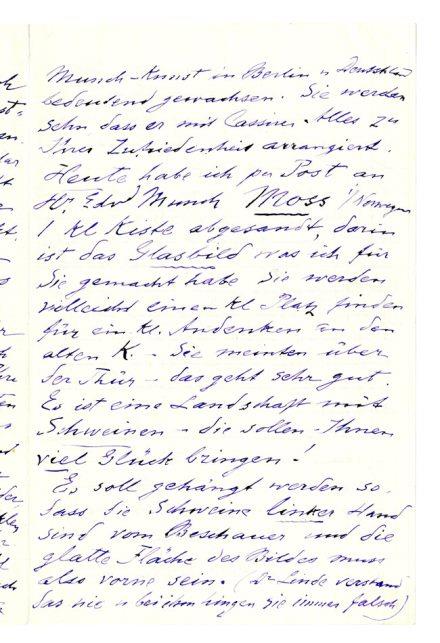 Munch-Kunst in Berlin u Deutschland
bedeutend gewachsen. Sie werden
sehn dass er mit Cassirer Alles zu
Ihrer Zufriedenheit arrangiert.
Heute habe ich per Post an
Hr. Edvd Munch Moss i/Norwegen
1 kl Kiste abgesandt, darin
ist das Glasbild was ich für
Sie gemacht habe Sie werden
vielleicht einen kl Platz finden
für ein kl. Andenken an den
alten K. - Sie meinten über
der Thür - das geht sehr gut.
Es ist eine Landschaft mit
Schweinen - die sollen Ihnen
viel Glück bringen!
Es soll gehängt werden so
dass die Schweine linker Hand
sind vom Beschauer und die
glatte Fläche des Bildes muss
also vorne sein. (Dr Linde verstand
das nie u bei ihm hingen sie immer falsch)